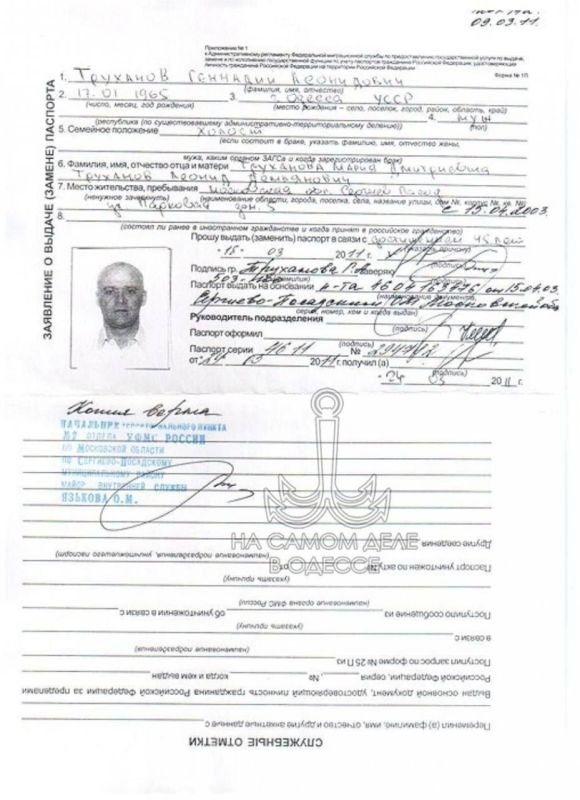 09.03.11.
Приложение № 1
к Административному регламенту Федеральной миграционной службы по предоставлению государственной услуги по выдаче,
замене и по исполнению государственной функции по учету паспортов гражданина Российской Федерации, удостоверяющих
личность гражданина Российской Федерации на территории Российской Федерации
Форма № 1П
ЗАЯВЛЕНИЕ О ВЫДАЧЕ (ЗАМЕНЕ) ПАСПОРТА
1. Труханов Геннадий Леонидович
(фамилия, имя, отчество)
2. 17.01 1965 3. г. Одесса УССР
(число, месяц, год рождения) (место рождения – село, поселок, город, район, область, край)
4. муж
(республики (по существовавшему административно-территориальному делению)) (пол)
5. Семейное положение холост
(если состоит в браке, указать фамилию, имя, отчество жены,
мужа, каким органом ЗАГСа и когда зарегистрирован брак)
6. Фамилия, имя, отчество отца и матери Труханова Мария Дмитриевна
Труханов Леонид Демьянович
7. Место жительства, пребывания Московская обл. Сергиев Посад
(ненужное зачеркнуть) (наименование области, города, поселка, села, название улицы, дом №, корпус №, кв. №)
ул Парковая с 15.04.2003.
8.
(состоял ли ранее в иностранном гражданстве и когда принят в российское гражданство)
Прошу выдать (заменить) паспорт в связи с достижением 45 лет
(указать причину)
15 03 2011 г.
(подпись)
Подпись гр. Труханова Г.Л. заверяю
503-
Паспорт выдать на основании п-та от 15.04.03
(наименование документа,
Сергиево-Посадским Московской обл
серия, номер, кем и когда выдан)
Руководитель подразделения
(подпись)
Паспорт оформил
(подпись)
Паспорт серии 4611 №
от 24 03 2011 г. получил (а)
(подпись)
24 03 2011 г.
Копия верна
НАЧАЛЬНИК ТЕРРИТОРИАЛЬНОГО ПУНКТА
№2 ОТДЕЛА УФМС РОССИИ
ПО МОСКОВСКОЙ ОБЛАСТИ
ПО СЕРГИЕВО-ПОСАДСКОМУ
МУНИЦИПАЛЬНОМУ РАЙОНУ
МАЙОР ВНУТРЕННЕЙ СЛУЖБЫ
ЯЗЫКОВА О.И.
НА САМОМ ДЕЛЕ
В ОДЕССЕ
СЛУЖЕБНЫЕ ОТМЕТКИ
Переменил (а) фамилию, имя, отчество и другие анкетные данные с
Выдан основной документ, удостоверяющий личность гражданина Российской Федерации за пределами
Российской Федерации, серия , №. , когда и кем выдан
Поступил запрос по форме № 25П из
(наименование подразделения)
в связи с
(указать причину)
Поступило сообщение из об уничтожении в связи с
(наименование органа ФМС России)
(указать причину)
Паспорт уничтожен по акту № от
(наименование подразделения, уничтожившего паспорт)
Другие сведения